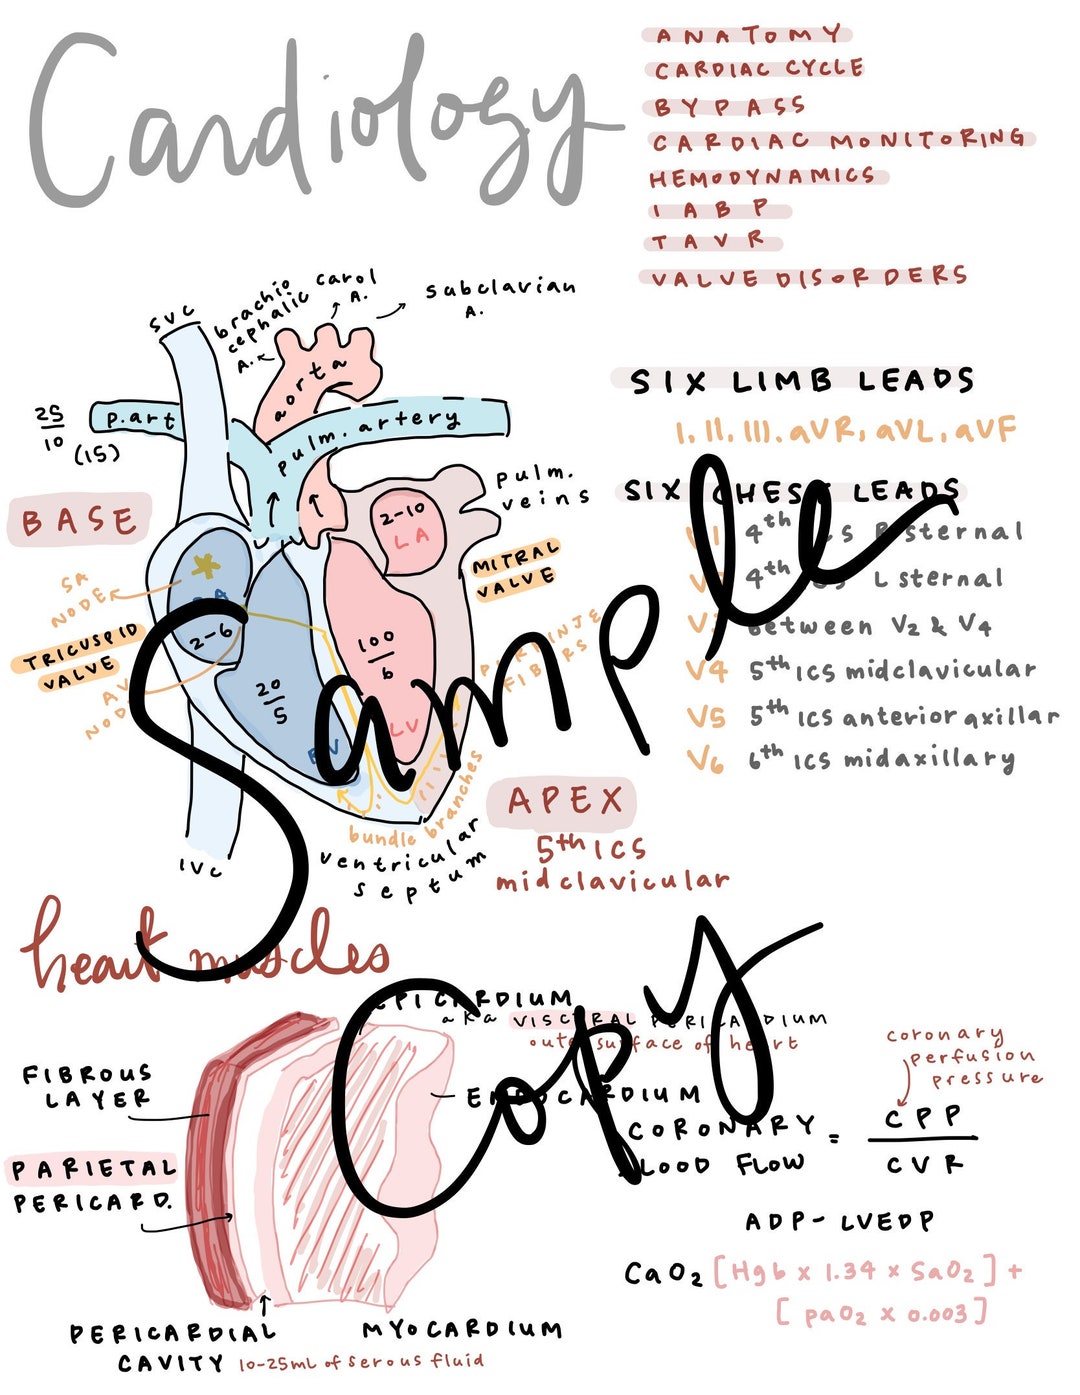 Cardiology
ANATOMY
CARDIAC CYCLE
BYPASS
CARDIAC MONITORING
HEMODYNAMICS
IABP
TAVR
VALVE DISORDERS
SVC
brachio
cephalic
A.
carol
A.
subclavian
A.
aorta
25
10
(15)
p.art
pulm. artery
pulm.
veins
BASE
2-10
LA
MITRAL
VALVE
SA
NODE
2-6
TRICUSPID
VALVE
AV
NODE
20
5
RV
100
6
LV
PURKINJE
FIBERS
bundle branches
ventricular
septum
IVC
APEX
5th ICS
midclavicular
SIX LIMB LEADS
I, II, III, aVR, aVL, aVF
SIX CHEST LEADS
V1 4th ICS R sternal
V2 4th ICS L sternal
V3 between V2 & V4
V4 5th ICS midclavicular
V5 5th ICS anterior axillar
V6 6th ICS midaxillary
Sample
Copy
heart muscles
EPICARDIUM
aka VISCERAL PERICARDIUM
outer surface of heart
ENDOCARDIUM
FIBROUS
LAYER
PARIETAL
PERICARD.
PERICARDIAL
CAVITY 10-25mL of serous fluid
MYOCARDIUM
coronary
perfusion
pressure
CORONARY
BLOOD FLOW
=
CPP
CVR
ADP-LVEDP
CaO2 [Hgb x 1.34 x SaO2] +
[paO2 x 0.003]